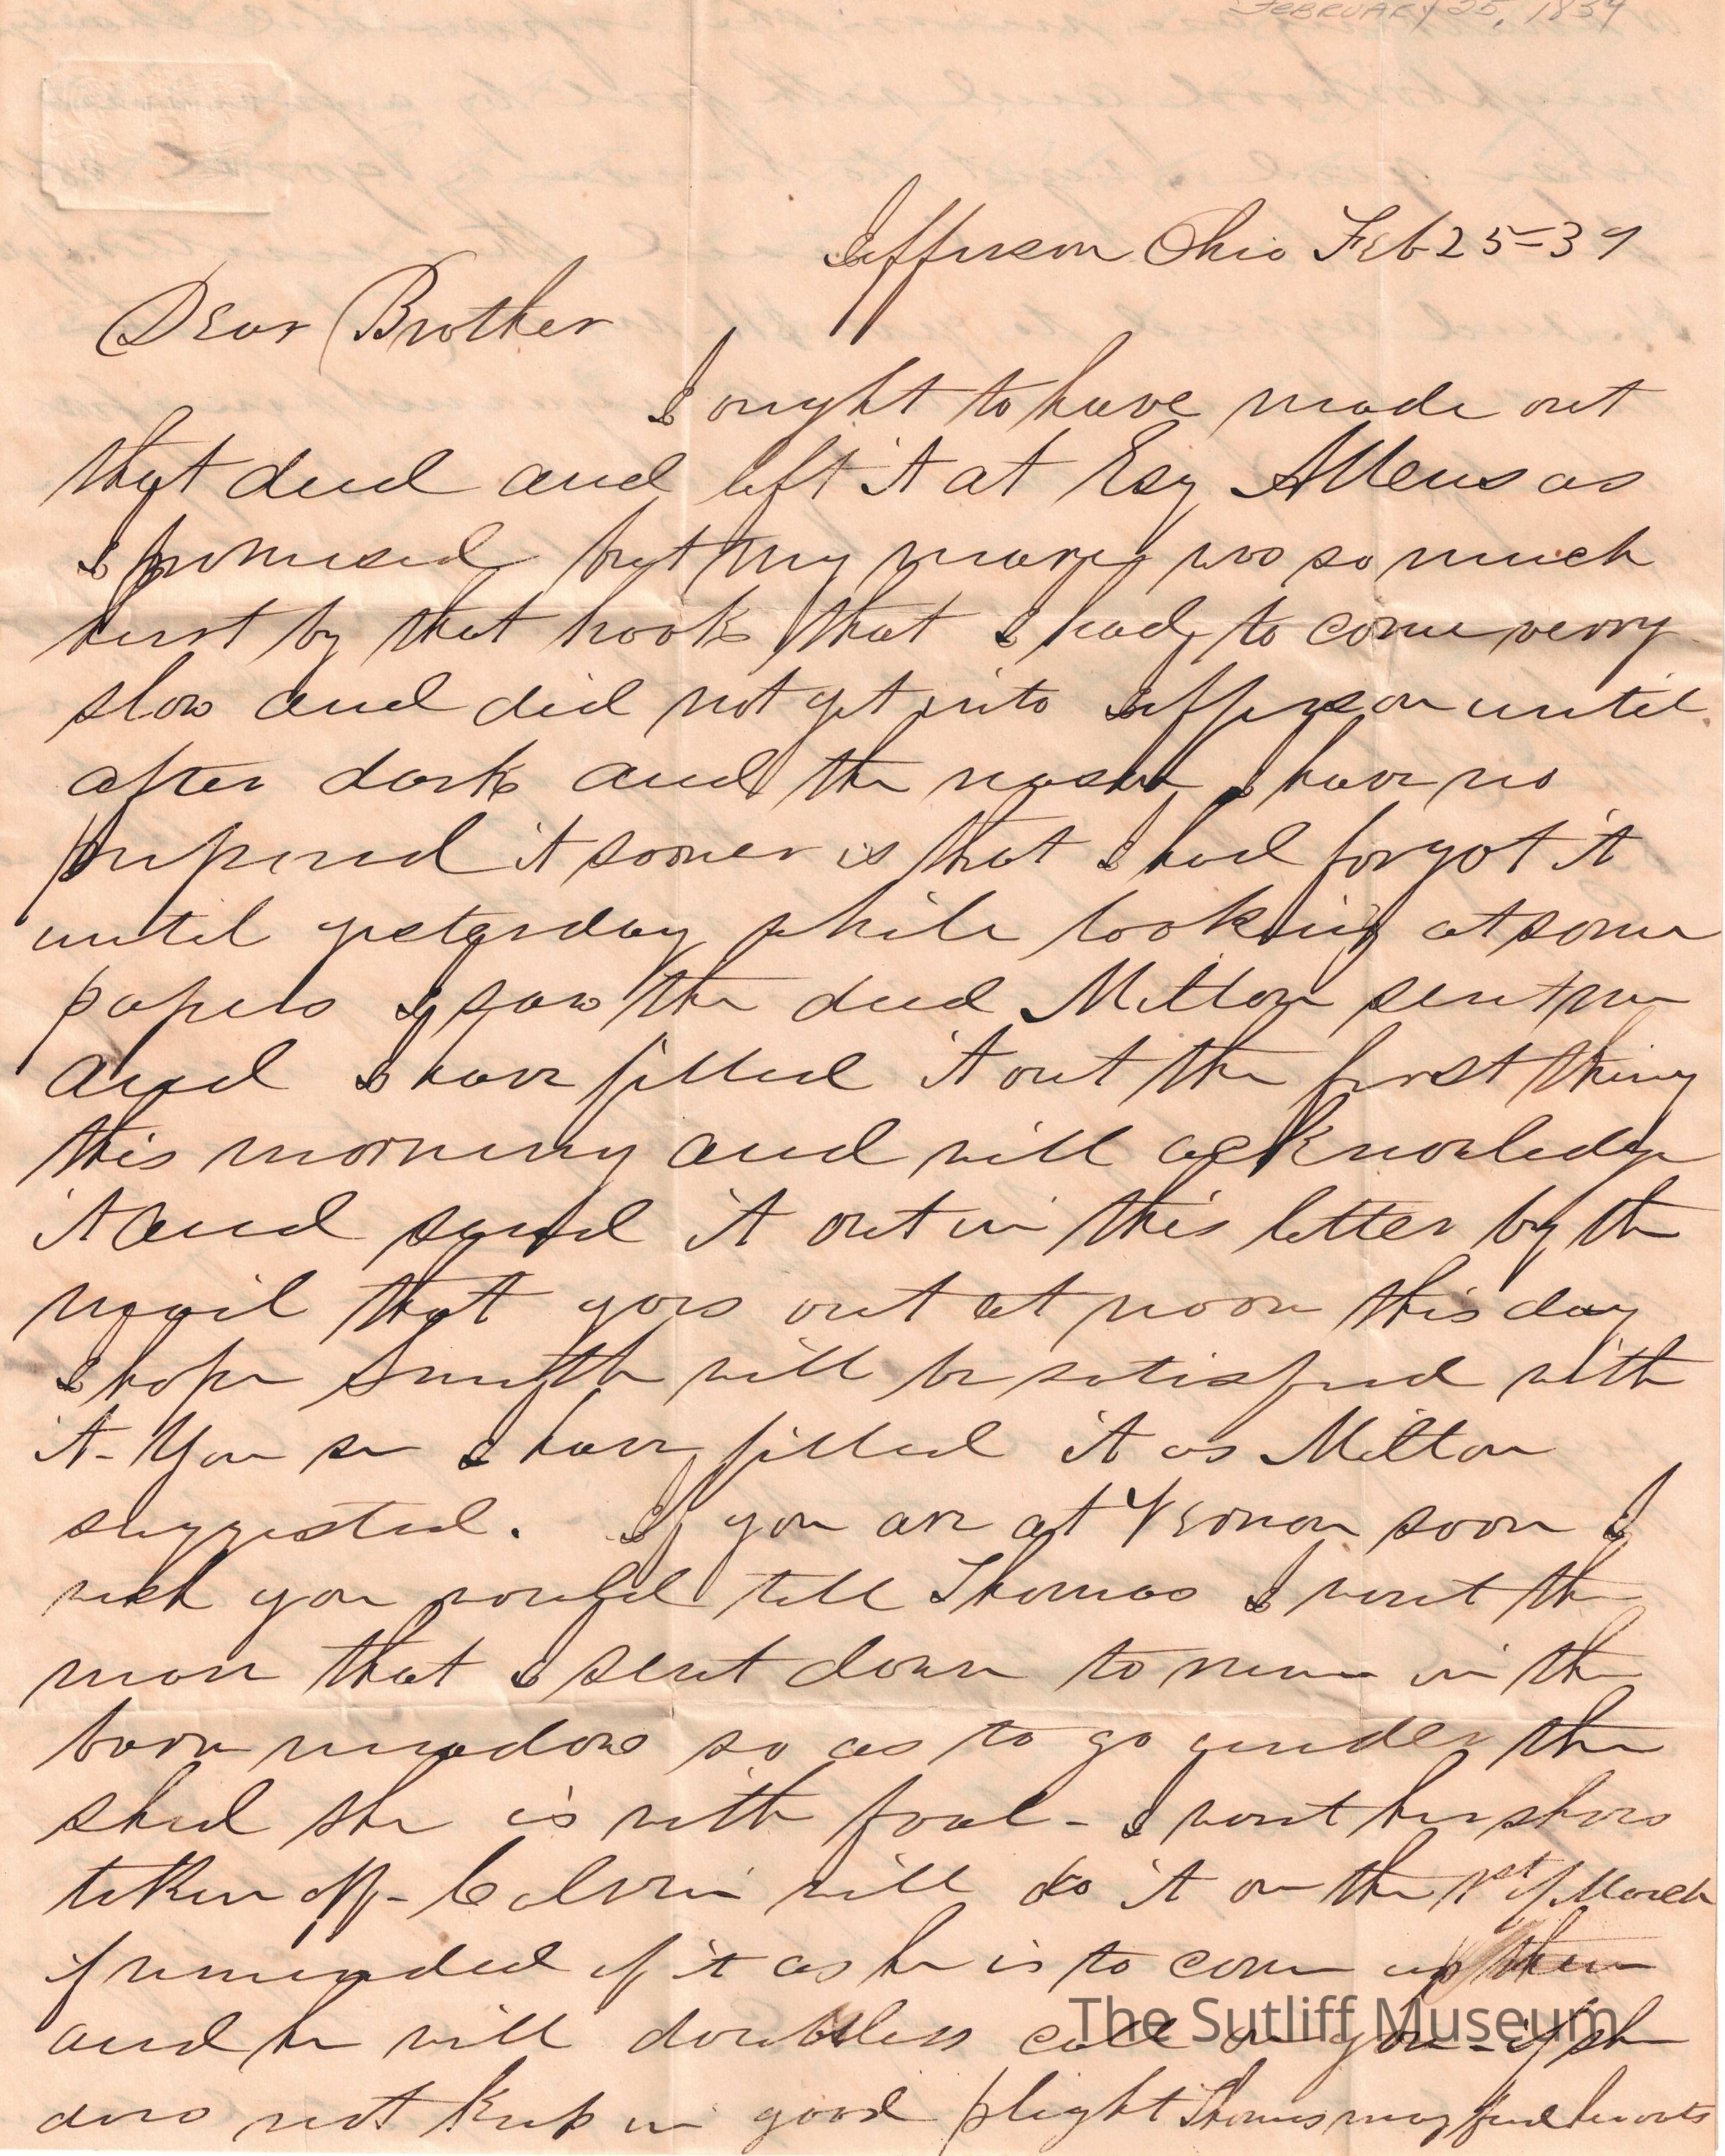 FEBRUARY 25, 1839
Jefferson Ohio Feb 25=39
Dear Brother
I ought to have made out
that deed and left it at Esq Allens as
I promised but my mare was so much
hurt by that hook that I had to come verry
slow and did not get into Jefferson until
after dark and the reason I have no
prepared it sooner is that I had forgot it
until yesterday while looking at some
papers I saw the deed Milton sent me
and I have filled it out the first thing
this morning and will acknowledge
it and send it out in this letter by the
mail that goes out at noon this day
I hope Smith will be satisfied with
it - You see I have filled it as Milton
suggested. If you are at Vernon soon I
wish you would tell Thomas I want the
mare that I sent down to run in the
barn meadow so as to go under the
shed she is with foal - I want her shoes
taken off - Calvin will do it on the 1st of March
if reminded of it as he is to come up then
and he will doubtless call on you - if she
The Sutliff Museum
does not keep in good plight Thomas may feed her oats